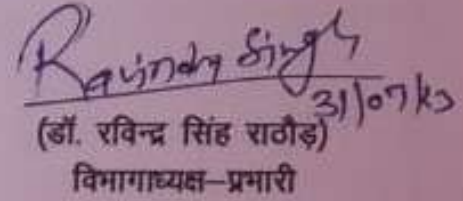 Ravindra Singh
31/07/23
(डॉ. रविन्द्र सिंह राठौड़)
विभागाध्यक्ष–प्रभारी